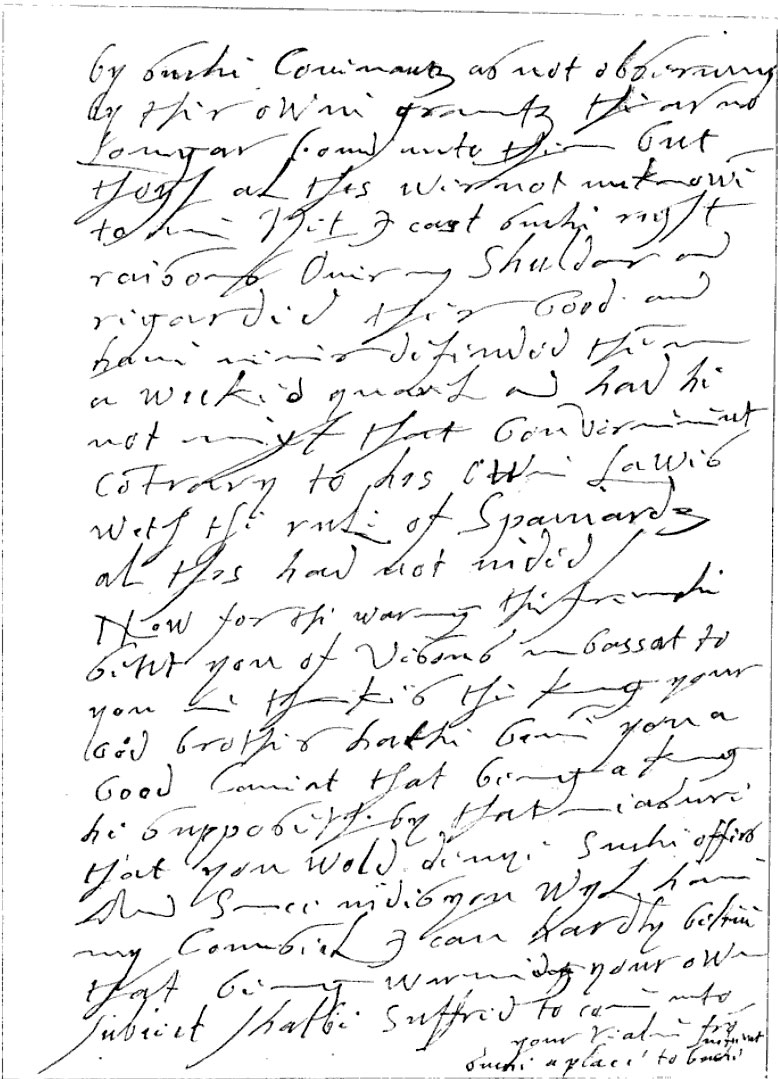 by suche Covenantz as not observing
by ther owne grantz the ar no
Longar bound unto them but
thogh al this wer not unknowe
to me Yit I cast suche right
raisons Over my Shuldar and
regarded ther Good and
have never defended them in
a wicked quarel and had he
not mixt that Government
Cotrary to his owne Lawes
with the rule of Spaniardz
al this had not neded
Now for the warning the frenche
gave you of Vesons embassat to
you me thinkes the king your
God brother hathe geven you a
Good Caveat that being a king
he supposeth by that measure
that you wold denye Suche offers
And Since nedes you wyl have
my Counsel I can hardly beleve
that being warned your own
subject shalbe Suffred to come into
your realme fro
suche a place to suche intent